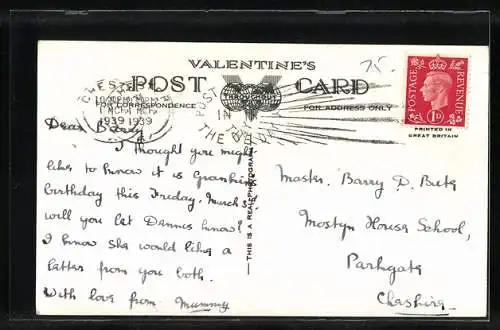 VALENTINE'S
75.
POST CARD
FOR CORRESPONDENCE
FOR ADDRESS ONLY
POSTAGE REVENUE
1D
PRINTED IN
GREAT BRITAIN
CHESTER
1939 1939
POST
IN
THE
THIS IS A REAL PHOTOGRAPH
Dear Barry
I thought you might
like to know it is Grannie's
birthday this Friday. March 3rd
will you let Dennis know?
I know she would like a
letter from you both.
With love from Mummy
Master. Barry D.
Mostyn House School,
Parkgate
Cheshire.